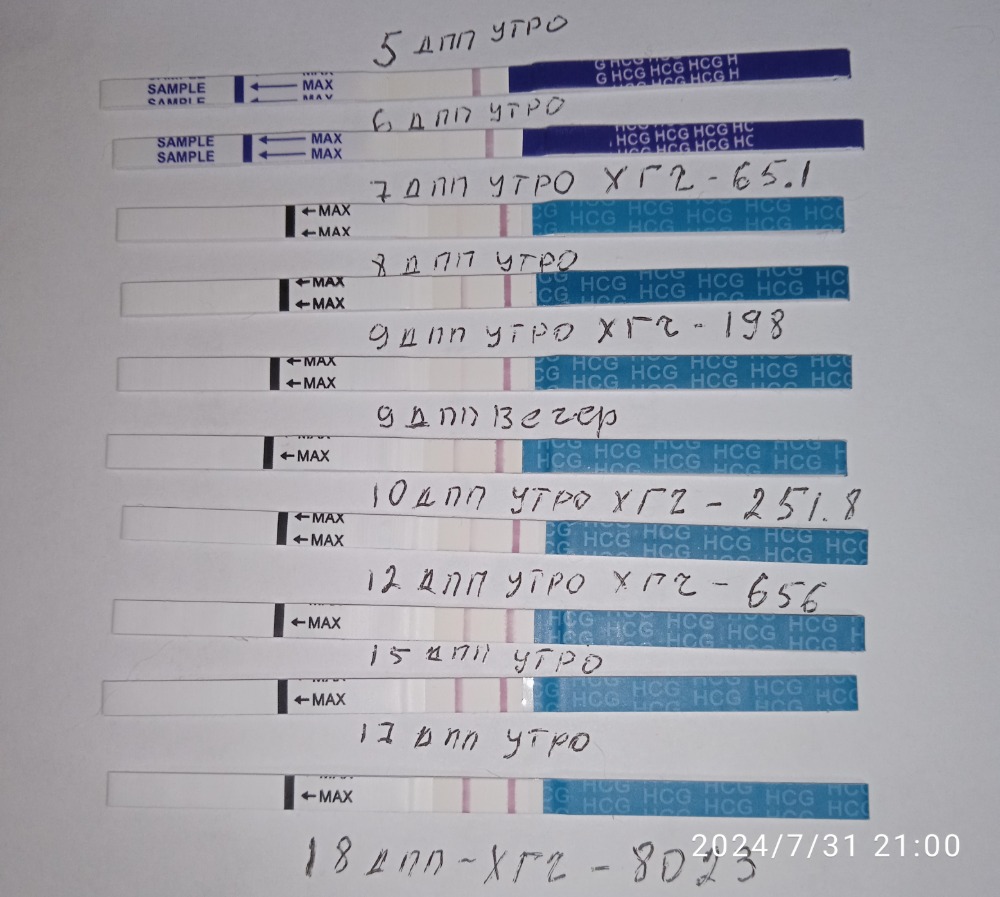 5 ДПП УТРО
SAMPLE MAX G HCG HCG HCG H
SAMPLE MAX G HCG HCG HCG H
SAMPLE MAX
6 ДПП УТРО
SAMPLE MAX HCG HCG HC
SAMPLE MAX HCG HCG HC
7 ДПП УТРО ХГЧ - 65.1
←MAX CG HCG HCG HCG HC
←MAX HCG HCG HCG
8 ДПП УТРО
←MAX CG HCG HCG HCG HC
←MAX CG HCG HCG
9 ДПП УТРО ХГЧ - 198
←MAX HCG HCG HCG HC
←MAX CG HCG HCG HCG HC
9 ДПП Вечер
←MAX CG HCG HCG HCG H
HCG HCG HCG
10 ДПП УТРО ХГЧ - 251.8
←MAX CG HCG HCG HCG HC
←MAX HCG HCG HCG
12 ДПП УТРО ХГЧ - 656
←MAX HCG HCG HCG H
HCG HCG HCG
15 ДПП УТРО
←MAX CG HCG HCG HCG HC
HCG HCG
17 ДПП УТРО
←MAX CG HCG HCG HCG HC
HCG HCG HCG
2024/7/31 21:00
18 ДПП - ХГЧ - 8023